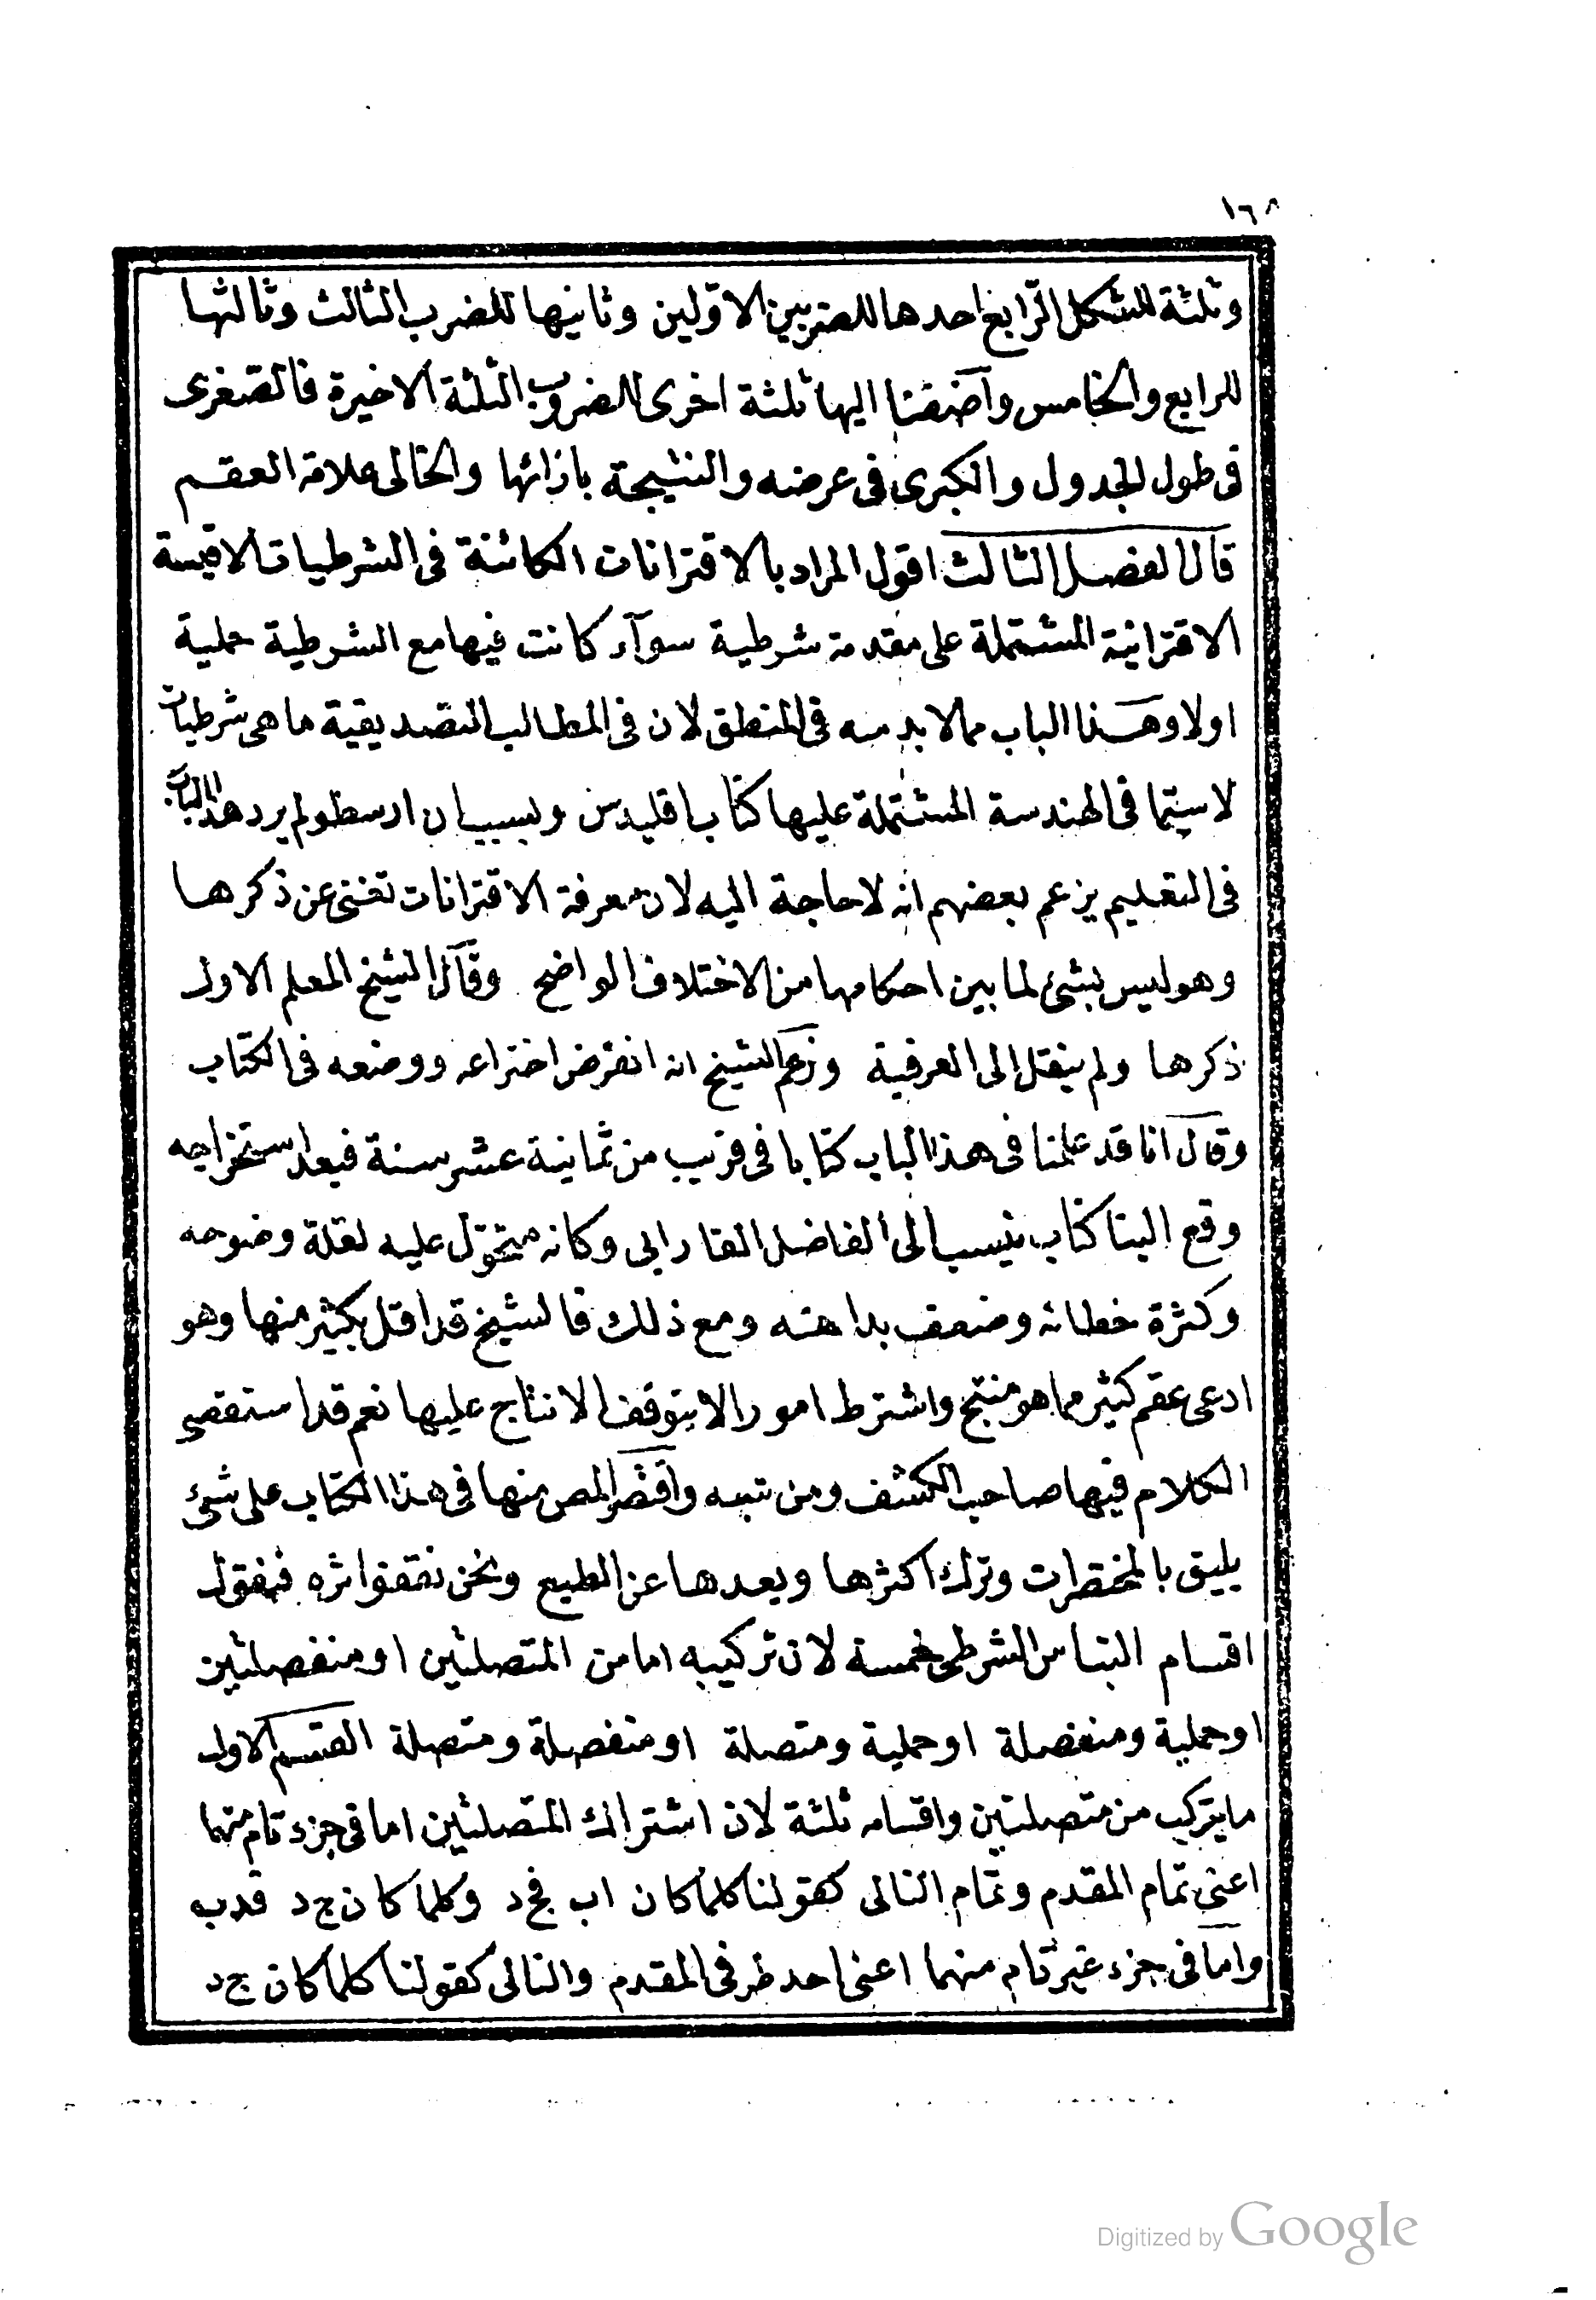 ١٦٨
وثلثة للشكل الرّابع احدها للضربين الاوّلين وثانيها للضرب الثالث وثالثها
للرابع والخامس وآضفنا اليها ثلثة اخرى للضروب الثلثة الاخيرة فالصّغرى
فى طول الجدول والكبرى فى عرضه والنتيجة بازائها والخالى علامة العقم
قال الفصل الثالث اقول المراد بالاقترانات الكائنة فى الشرطيات الاقيسة
الاقترانية المشتملة على مقدمة شرطية سوآء كانت فيها مع الشرطية حملية
اولا وهذا الباب مما لا بد منه فى المنطق لان فى المطالب التصديقية ما هى شرطيات
لا سيّما فى الهندسة المشتملة عليها كتاب اقليدس وبسبب ان ارسطو لم يرد هذا الباب
فى التعليم يزعم بعضهم انه لا حاجة اليه لان معرفة الاقترانات تغنى عن ذكرها
وهو ليس بشئ لما بين احكامها من الاختلاف الواضح وقال الشيخ المعلم الاول
ذكرها ولم ينقل الى العرفية وزعم الشيخ انه انفرض اختراعه ووضعه فى الكتاب
وقال انا قد علمنا فى هذا الباب كتابا فى قريب من ثمانية عشر سنة فبعد استخراجه
وقع الينا كتاب ينسب الى الفاضل الفارابى وكانه متحوّل عليه لقلة وضوحه
وكثرة خطائه وضعف بداهته ومع ذلك فالشيخ قد اقل بكثير منها وهو
ادعى عقم كثير مما هو منتج واشترط امورا لا يتوقف الانتاج عليها نعم قد استقصى
الكلام فيها صاحب الكشف ومن تبعه واقتصر المص منها فى هذا الكتاب على شئ
يليق بالمختصرات وترك اكثرها وبعدها عن الطبع ونحن نقفوا اثره فنقول
اقسام القياس الشرطى خمسة لان تركيبه اما من المتصلتين او منفصلتين
او حملية ومنفصلة او حملية ومتصلة او منفصلة ومتصلة القسم الاول
ما يتركب من متصلتين واقسامه ثلثة لان اشتراك المتصلتين اما فى جزء تام منهما
اعنى تمام المقدم وتمام التالى كقولنا كلما كان اب فج د وكلما كان ج د قدب
واما فى جزء غير تام منهما اعنى احد طرفى المقدم والتالى كقولنا كلما كان ج د
Digitized by Google